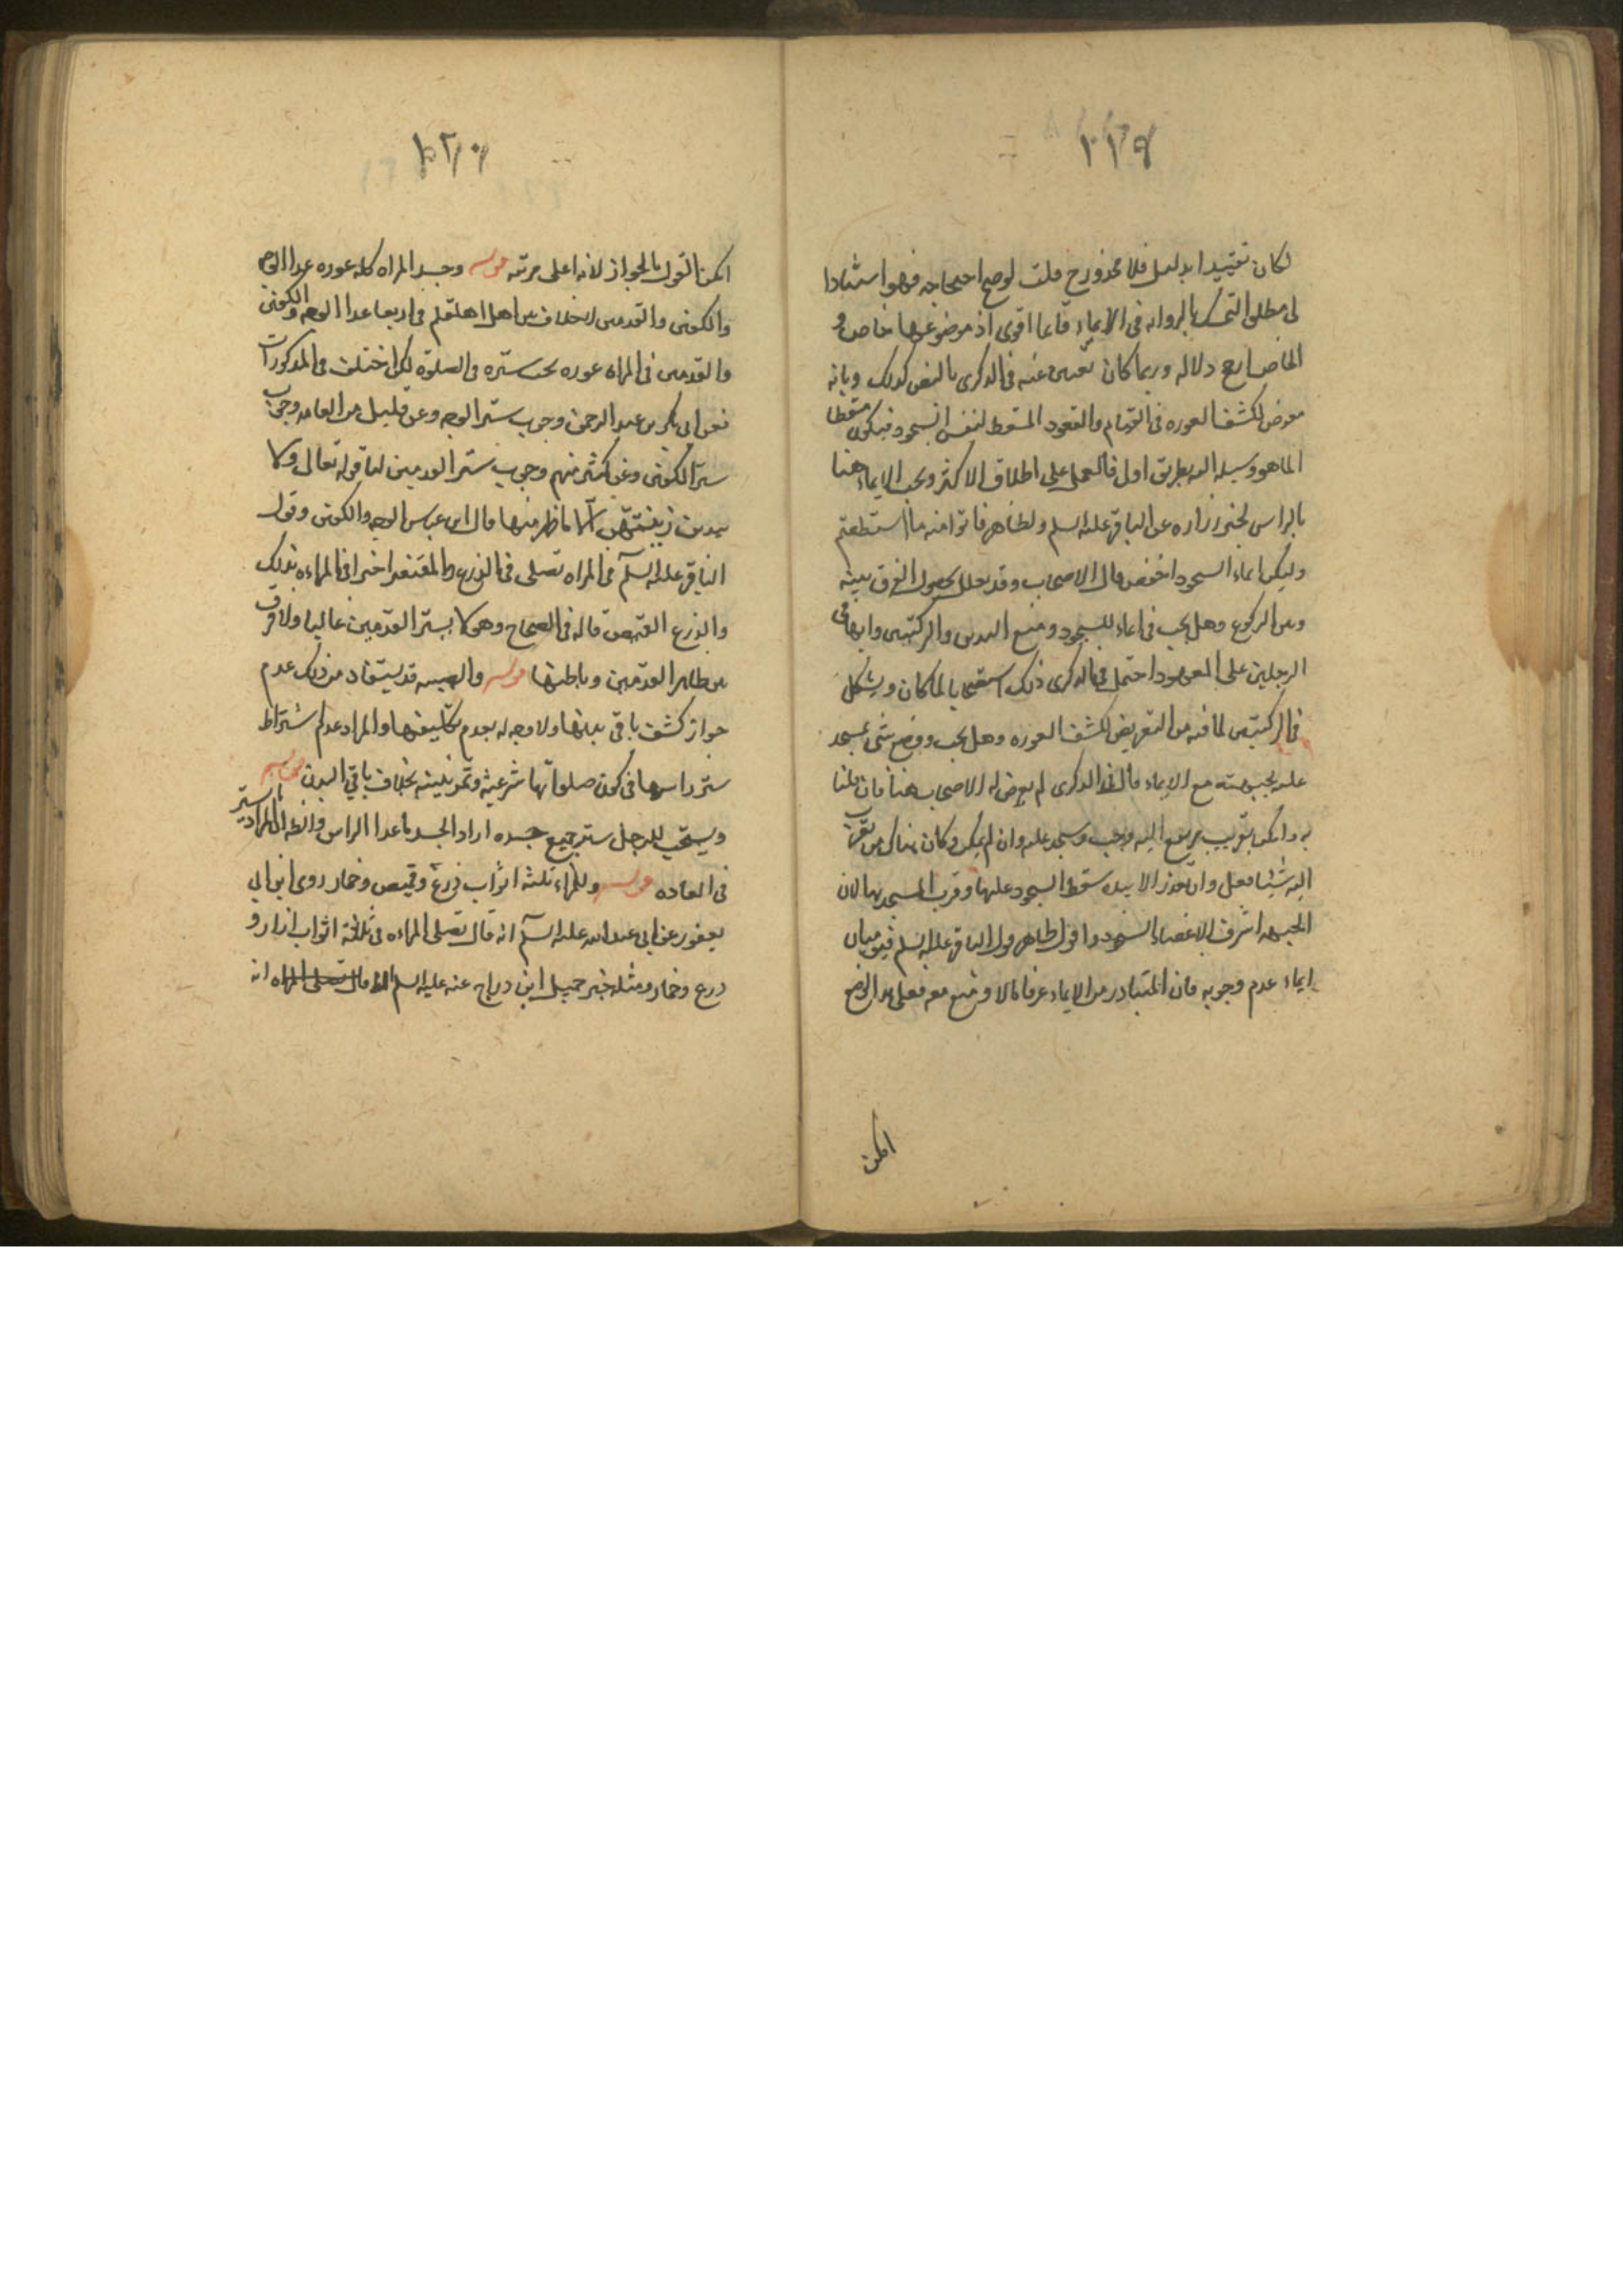 ١١٩
لكان تقييدا بدليل فلا محذور ح قلت لو صح احتجاجه فهو استنادا
الى مطلق التمسك بالرواية في الايماء قائما اقوى اذ موضوعها خاص و
الخاص ارجح دلالة وربما كان تعين عنه في الذكرى بالنص كذلك وبانه
معرض لكشف العورة في القيام والقعود المسقط لنفس السجود فيكون مسقطا
لما هو وسيلة اليه بطريق اولى فالعمل على اطلاق الاكثر ويجب الايماء هنا
بالراس لخبر زرارة عن الباقر عليه السلم ولظاهر فاتوا منه ما استطعتم
وليكن ايماء السجود اخفض قال الاصحاب وقد يعلل بحصول الفرق بينه
وبين الركوع وهل يجب في ايماء للسجود وضع اليدين والركبتين وابهامى
الرجلين على المعهود احتمل في الذكرى ذلك استصحابا لما كان ويشكل
في الركبتين لما فيه من التعريض لكشف العورة وهل يجب وضع شئ يسجد
عليه بجبهته مع الايماء قال في الذكرى لم يعرض له الاصحاب هنا فان قلنا
به وامكن تقريب مرتفع اليه وجب وسجد عليه وان لم يكن وكان هناك من يقرب
اليه شيئا فعل وان تعذر الا بيده سقط السجود عليها وقرب المسجد بها لان
الجبهة اشرف الاعضاء السجود واقول ظاهر قول الباقر عليه السلم فيوميان
ايماء عدم وجوبه فان المتبادر من الايماء عرفا مالا وضع معه فعلى هذا الوضع
امكن
١٢٠
امكن القول بالجواز لانه اعلى مرتبة قوله وجسد المراة كله عورة عدا الوجه
والكفين والقدمين لا خلاف بين اهل القبلة في اربعا عدا الوجه والكفين
والقدمين في المراة عورة يجب ستره في الصلوة لكن اختلف في المذكورات
فعن ابي بكر بن عبد الرحمن وجوب ستر الوجه وعن قليل من العامة وجوب
ستر الكفين وعن كثير منهم وجوب ستر القدمين لنا قوله تعالى ولا
يبدين زينتهن الا ما ظهر منها قال ابن عباس الوجه والكفين وقول
الباقر عليه السلم في المراة تصلى في الدرع والمقنعة اخبرا في المراءة بذلك
والدرع القميص قاله في الصحاح وهو لا يستر القدمين غالبا ولا فرق
بين ظاهر القدمين وباطنها قوله والصبية قد يستفاد من ذلك عدم
جواز كشف باقى بدنها ولا وجه له لعدم تكليفها والمراد عدم اشتراط
ستر راسها في كون صلواتها شرعية وتمرينية بخلاف باقي البدن قوله
ويستحب للرجل ستر جميع جسده اراد الجسد ما عدا الراس والظ ان المراد ما يستر
في العادة قوله وللمراة ثلثة اثواب درع وقميص وخمار روى ابن ابي
يعفور عن ابى عبد الله عليه السلم انه قال تصلى المراءه في ثلاثة اثواب ازار و
درع وخمار ومثله خبر جميل ابن دراج عنه عليه السلم قال تصلى المراه انه